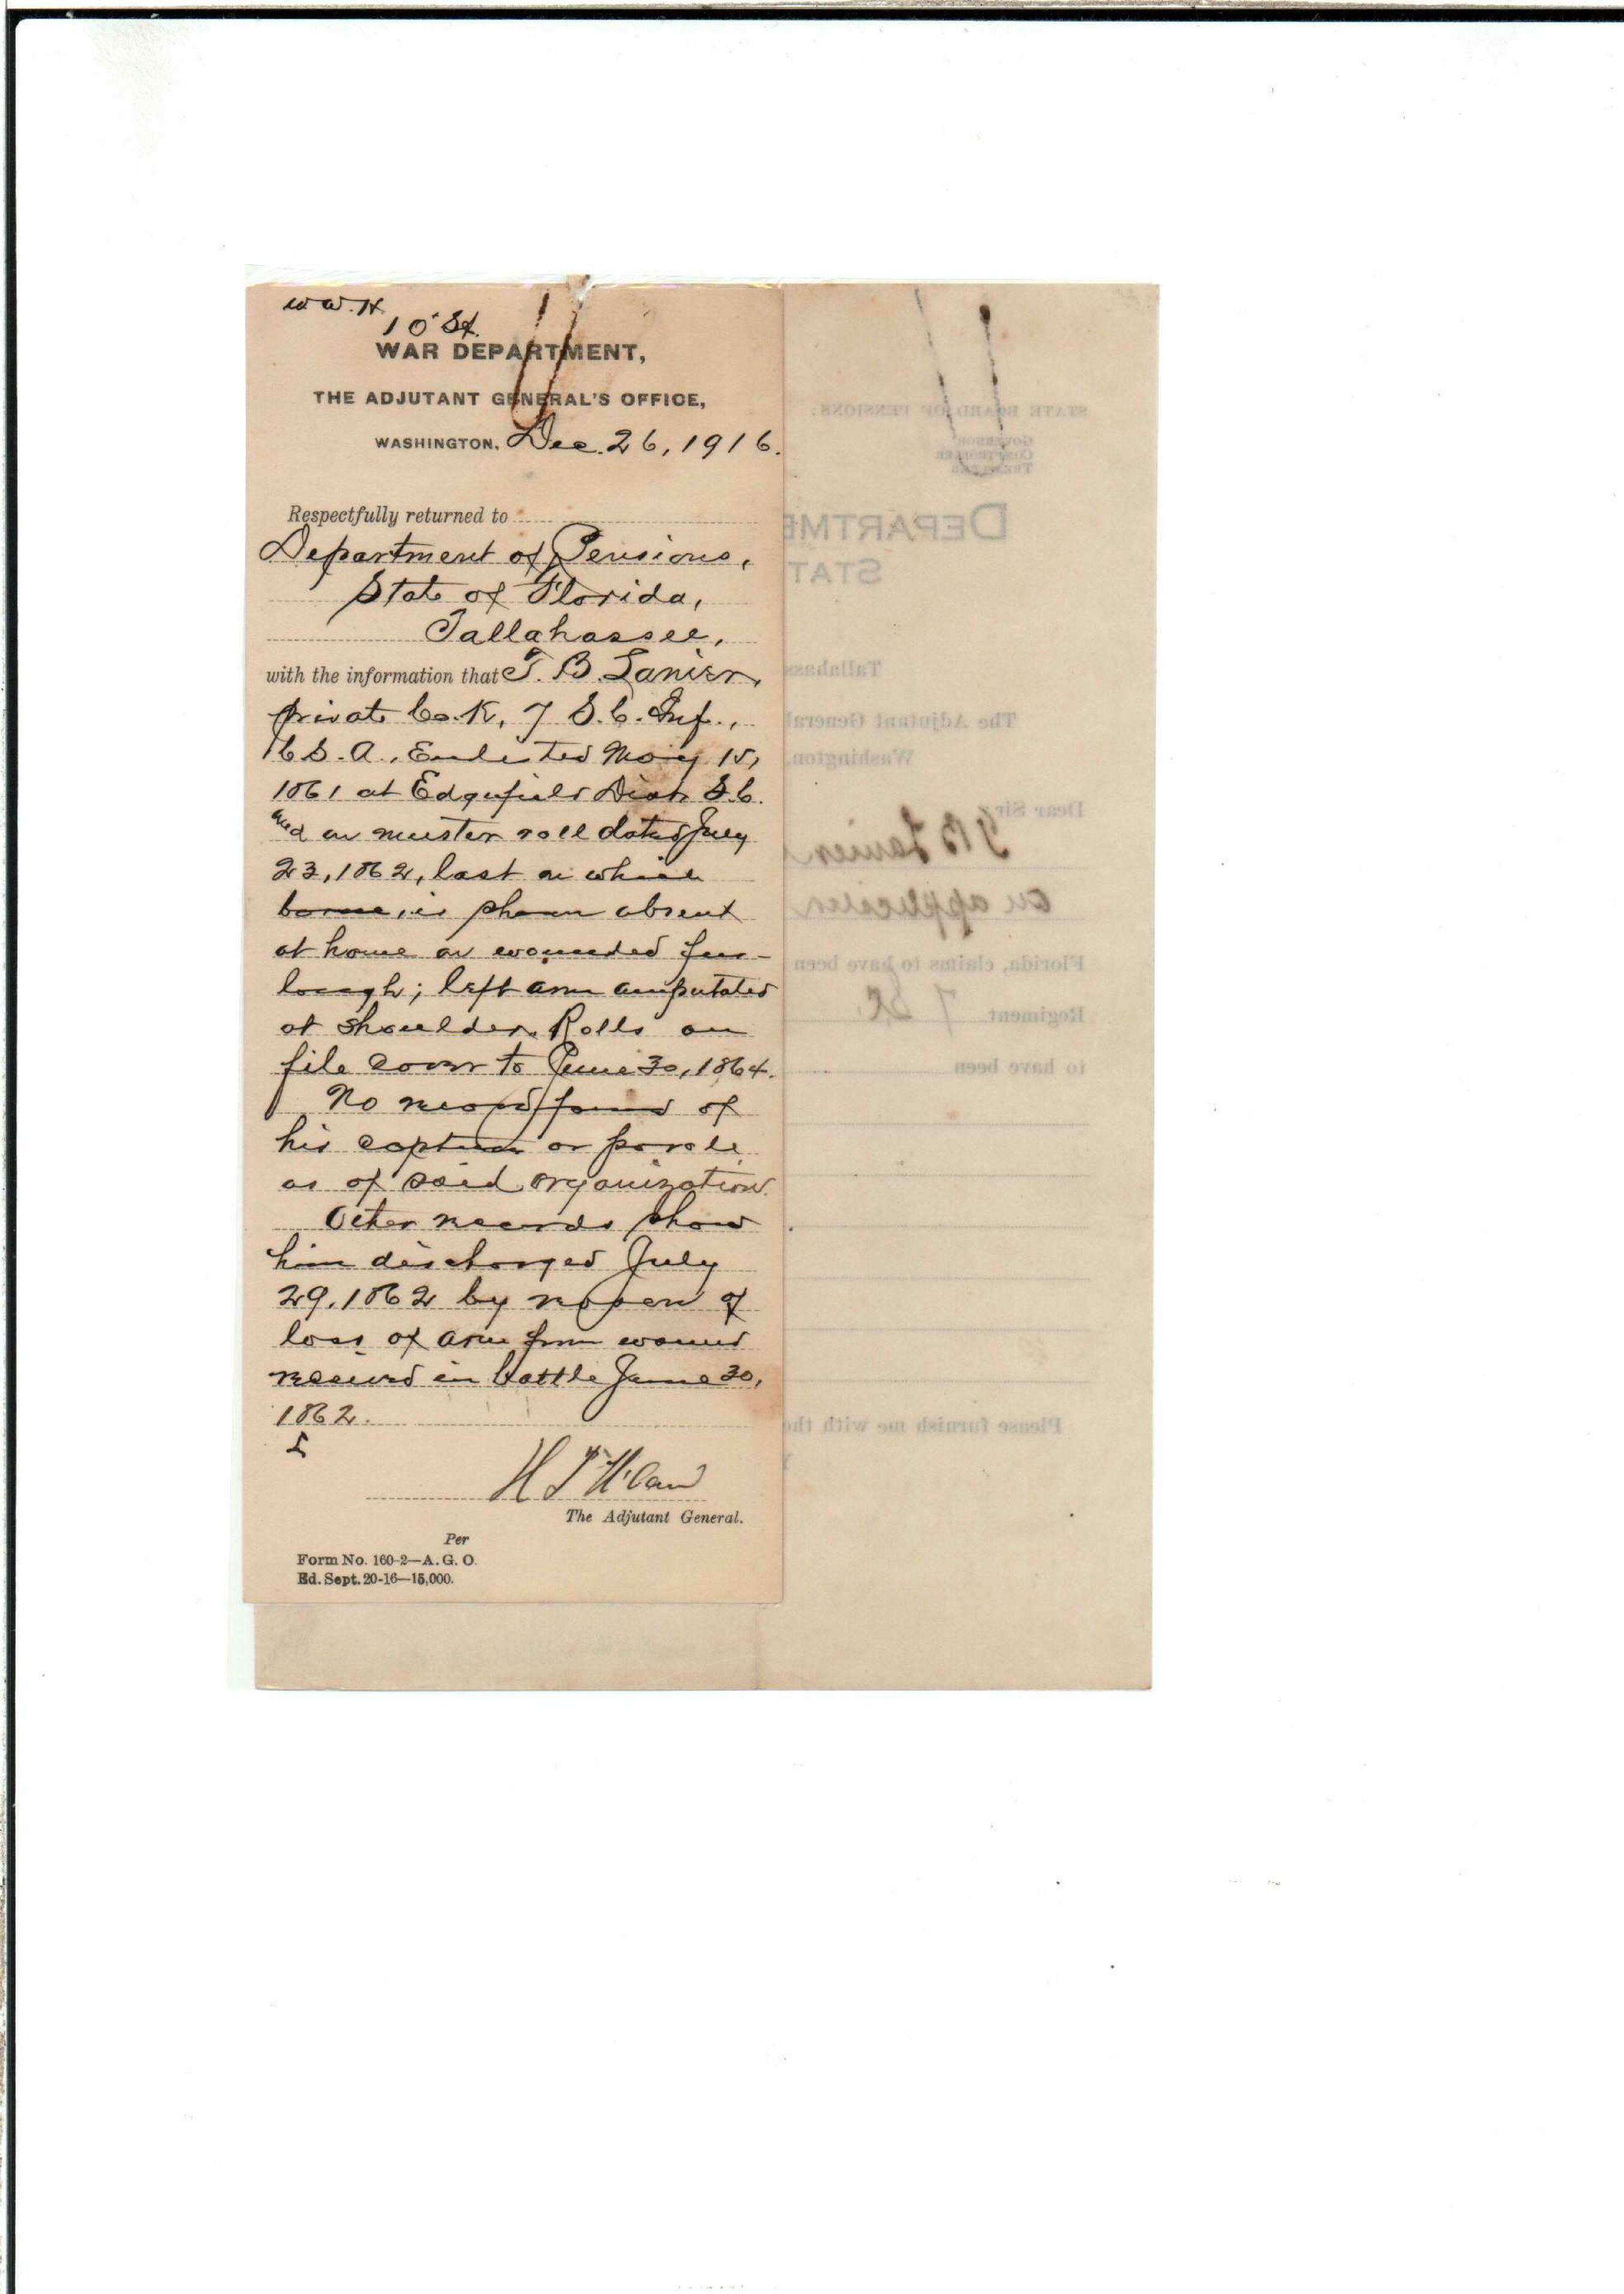 W.W.H.
10 St.
WAR DEPARTMENT,
THE ADJUTANT GENERAL'S OFFICE,
WASHINGTON, Dec. 26, 1916.
Respectfully returned to
Department of Pensions,
State of Florida,
Tallahassee,
with the information that T. B. Lanier,
private Co. K, 7 S.C. Inf.,
C.S.A., Enlisted May 15,
1861 at Edgefield Dist. S.C.
and on muster roll dated July
23, 1862, last on which
borne, is shown absent
at home on wounded fur-
lough; left arm amputated
at shoulder. Rolls on
file cover to June 30, 1864.
No record found of
his capture or parole
as of said organization.
Other records show
him discharged July
29, 1862 by reason of
loss of arm from wound
received in battle June 30,
1862.
The Adjutant General.
Per
Form No. 160-2—A. G. O.
Ed. Sept. 20-16—15,000.
STATE BOARD OF PENSIONS:
GOVERNOR
COMPTROLLER
TREASURER
DEPARTME
STAT
Tallahass
The Adjutant General
Washington,
Dear Sir:
T B Lanier
an applicant
Florida, claims to have been
Regiment 7 S.C.
to have been
Please furnish me with the